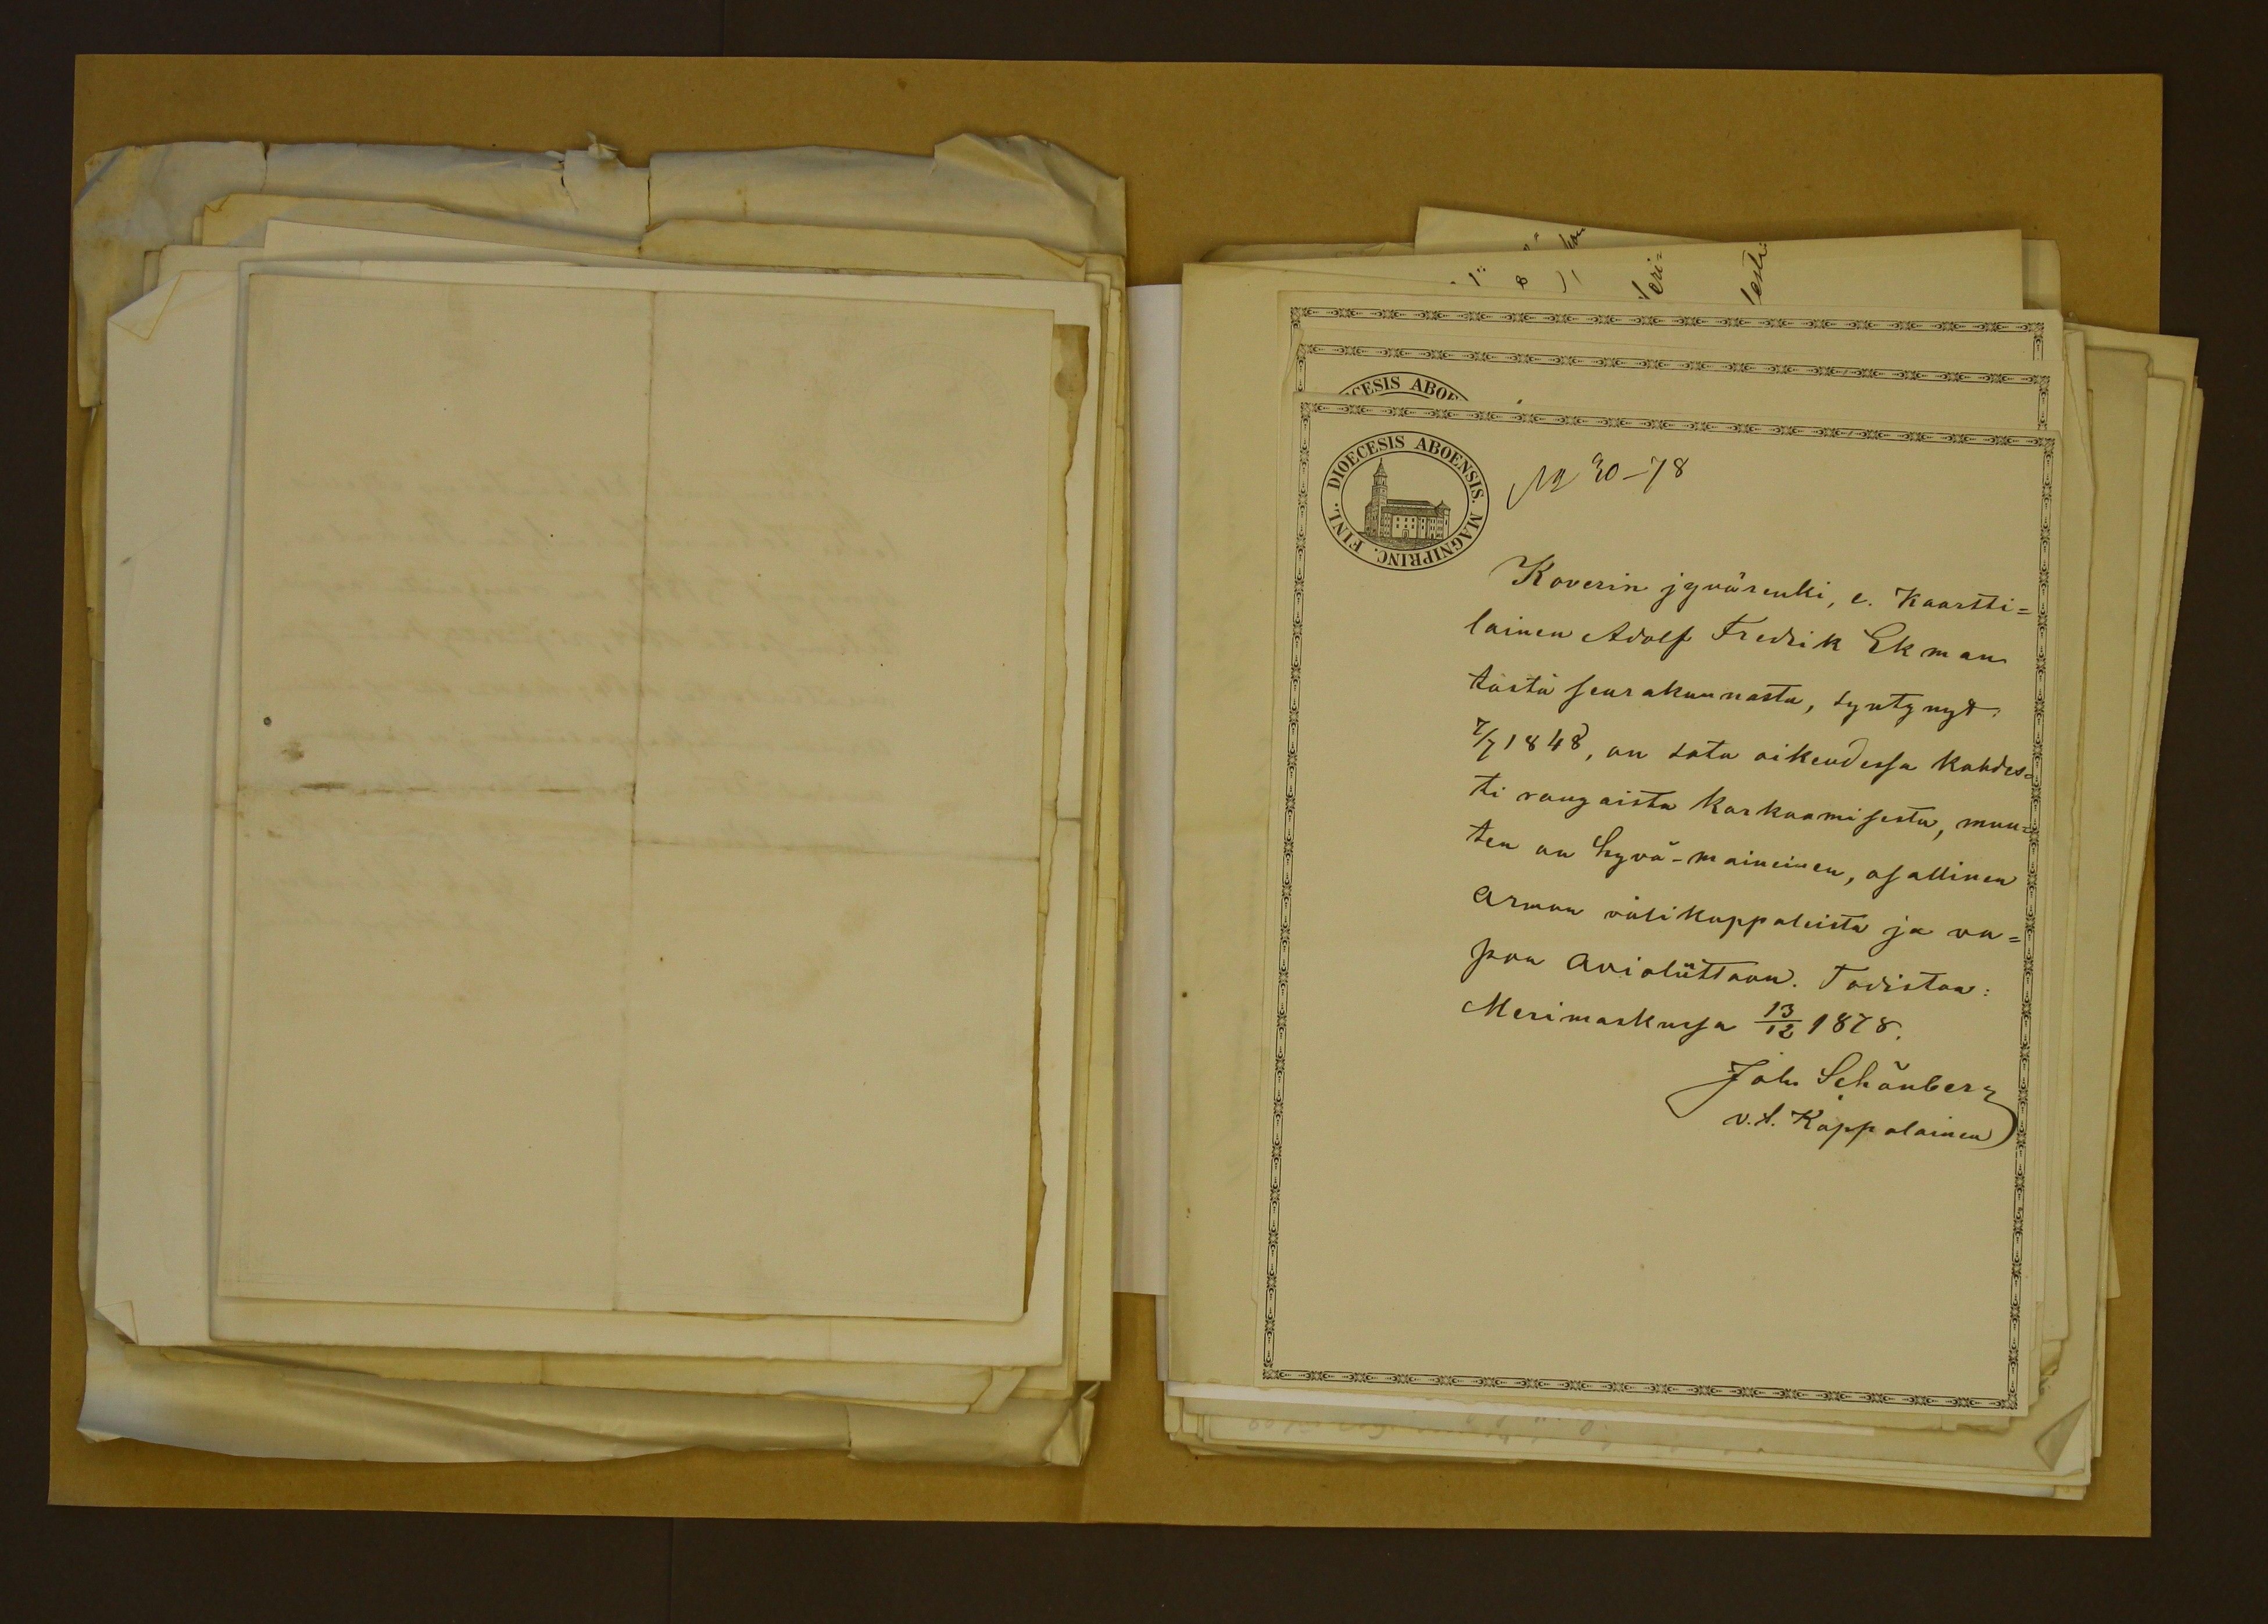 DIOECESIS ABOENSIS. MAGNIPRINC. FINL.
№ 30-78
Koverin jyvärenki, e. Kaartti=
lainen Adolf Fredrik Ekman
tästä seurakunnasta, syntynyt
7/7 1848, on sota oikeudessa kahdes=
ti rangaistu karkaamisesta, muu=
ten on hyvä-maineinen, osallinen
armon välikappaleista ja va=
paa avioliittoon. Todistaa:
Merimaskussa 13/12 1878.
Joh. Schönberg
v.t. Kappalainen